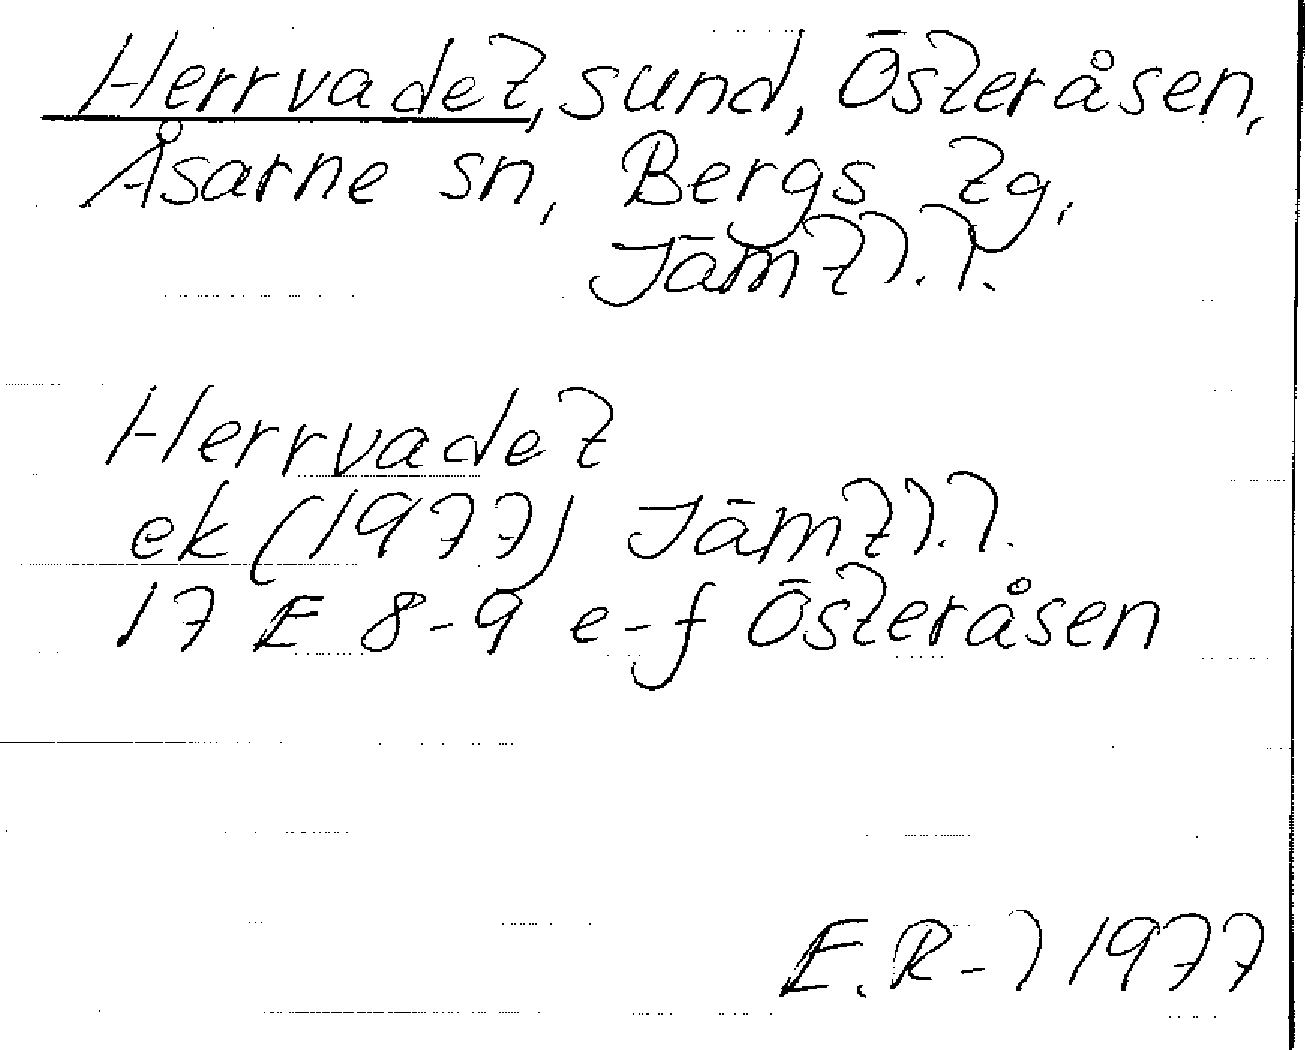 Herrvadet, sund, Österåsen,
Åsarne sn, Bergs tg,
Jämtl. l.
Herrvadet
ek (1977) Jämtl. l.
17 E 8-9 e-f Österåsen
E. R-l 1977